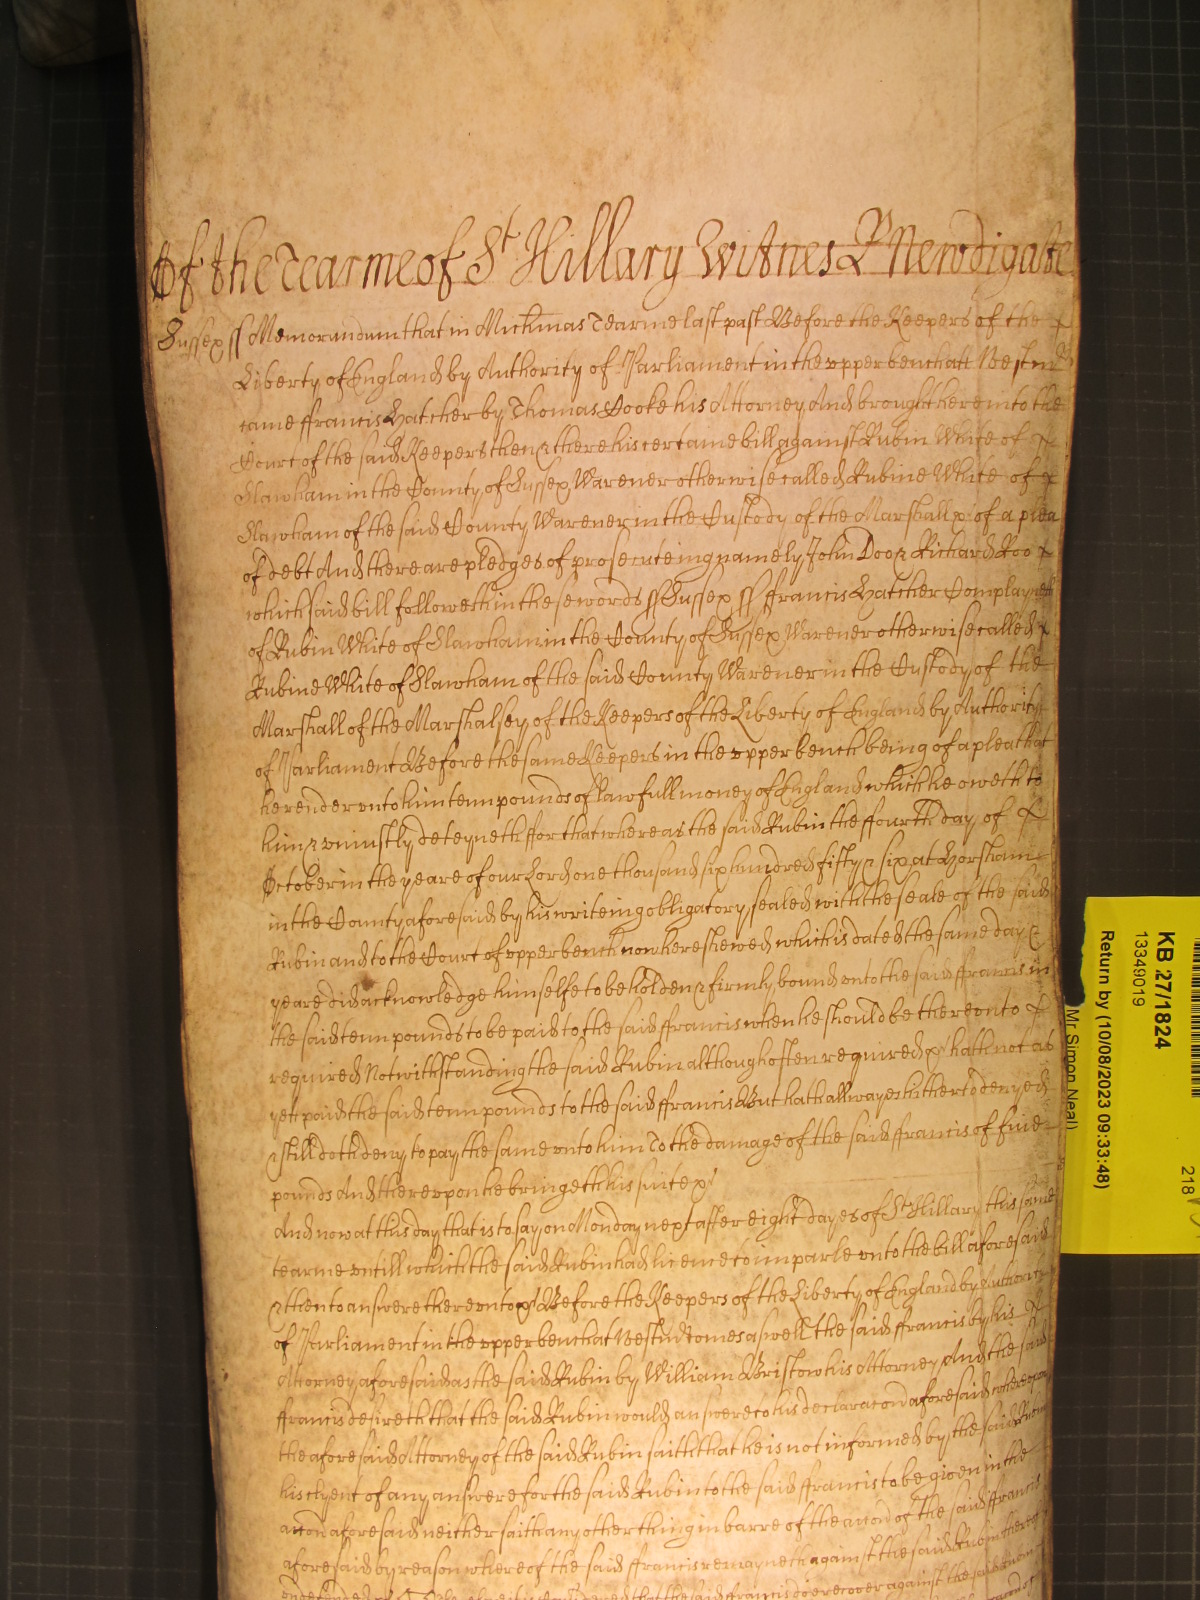 Of the Tearme of St Hillary Witnes R Newdigate
Sussex ss Memorandum that in Michmas Tearme last past Before the Keepers of the
Liberty of England by Authority of Parliament in the vpper bench att Westm
came ffrancis Hatcher by Thomas Cooke his Attorney And brought here into the
Court of the said Keepers then & there his certaine bill against Rubin White of
Slawham in the County of Sussex Warener otherwise called Rubine White of
Slawham of the said County Warener in the Custody of the Marshall &c of a plea
of debt And there are pledges of prosecuteing namely John Doo & Richard Roo
which said bill followeth in these words ss Sussex ss ffrancis Hatcher Complayneth
of Rubin White of Slawham in the County of Sussex Warener otherwise called
Rubine White of Slawham of the said County Warener in the Custody of the
Marshall of the Marshalsey of the Keepers of the Liberty of England by Authority
of Parliament Before the same Keepers in the vpper bench being of a plea that
he render vnto him tenn pounds of lawfull money of England which he oweth to
him & vniustly deteyneth ffor that whereas the said Rubin the ffourth day of
October in the yeare of our Lord one thousand six hundred fifty & six at Horsham
in the County aforesaid by his writeing obligatory sealed with the seale of the said
Rubin and to the Court of vpper bench now here shewed which is dated the same day &
yeare did acknowledge himselfe to be holden & firmly bound vnto the said ffrancis in
the said tenn pounds to be paid to the said ffrancis when he should be therevnto
required Notwithstanding the said Rubin although often required &c hath not as
yett paid the said tenn pounds to the said ffrancis But hath allwayes hitherto denyed
& still doth deny to pay the same vnto him To the damage of the said ffrancis of fiue
pounds And therevpon he bringeth his suite &c
And now at this day that is to say on Monday next after eight dayes of St Hillary this same
tearme vntill which the said Rubin had licence to imparle vnto the bill aforesaid
& then to answere therevnto &c Before the Keepers of the Liberty of England by Authority
of Parliament in the vpper bench at Westm comes aswell the said ffrancis by his
Attorney aforesaid as the said Rubin by William Bristow his Attorney And the said
ffrancis desireth that the said Rubin would answere to his declaracon aforesaid wherevpon
the aforesaid Attorney of the said Rubin saith that he is not informed by the said Rubin
his clyent of any answere for the said Rubin to the said ffrancis to be given in the
accon aforesaid neither saith any other thing in barre of the accon of the said ffrancis
aforesaid by reason whereof the said ffrancis remayneth against the said Rubin therein
vndefended &c Therefore it is considered that the said ffrancis doe recover against the said Rubin
KB 27/1824
13349019
Return by (10/08/2023 09:33:48)
Mr Simon Neal)
218